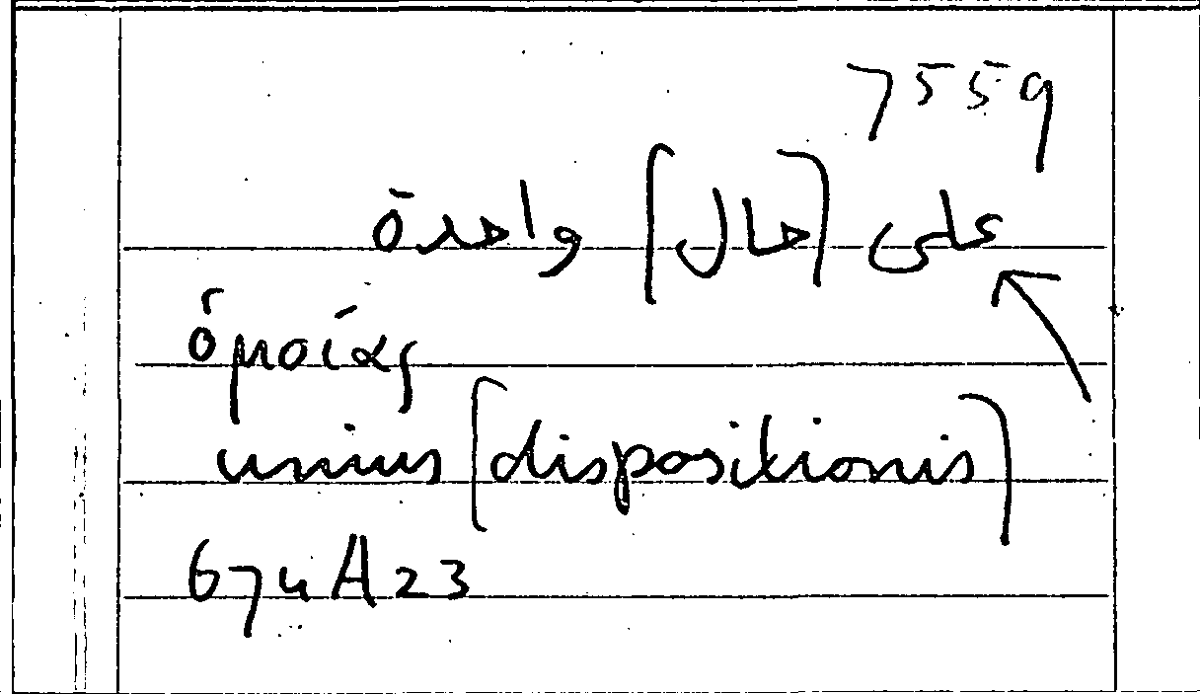 7559
على [حال] واحدة
ὁμοίας
unius [dispositionis]
674A23